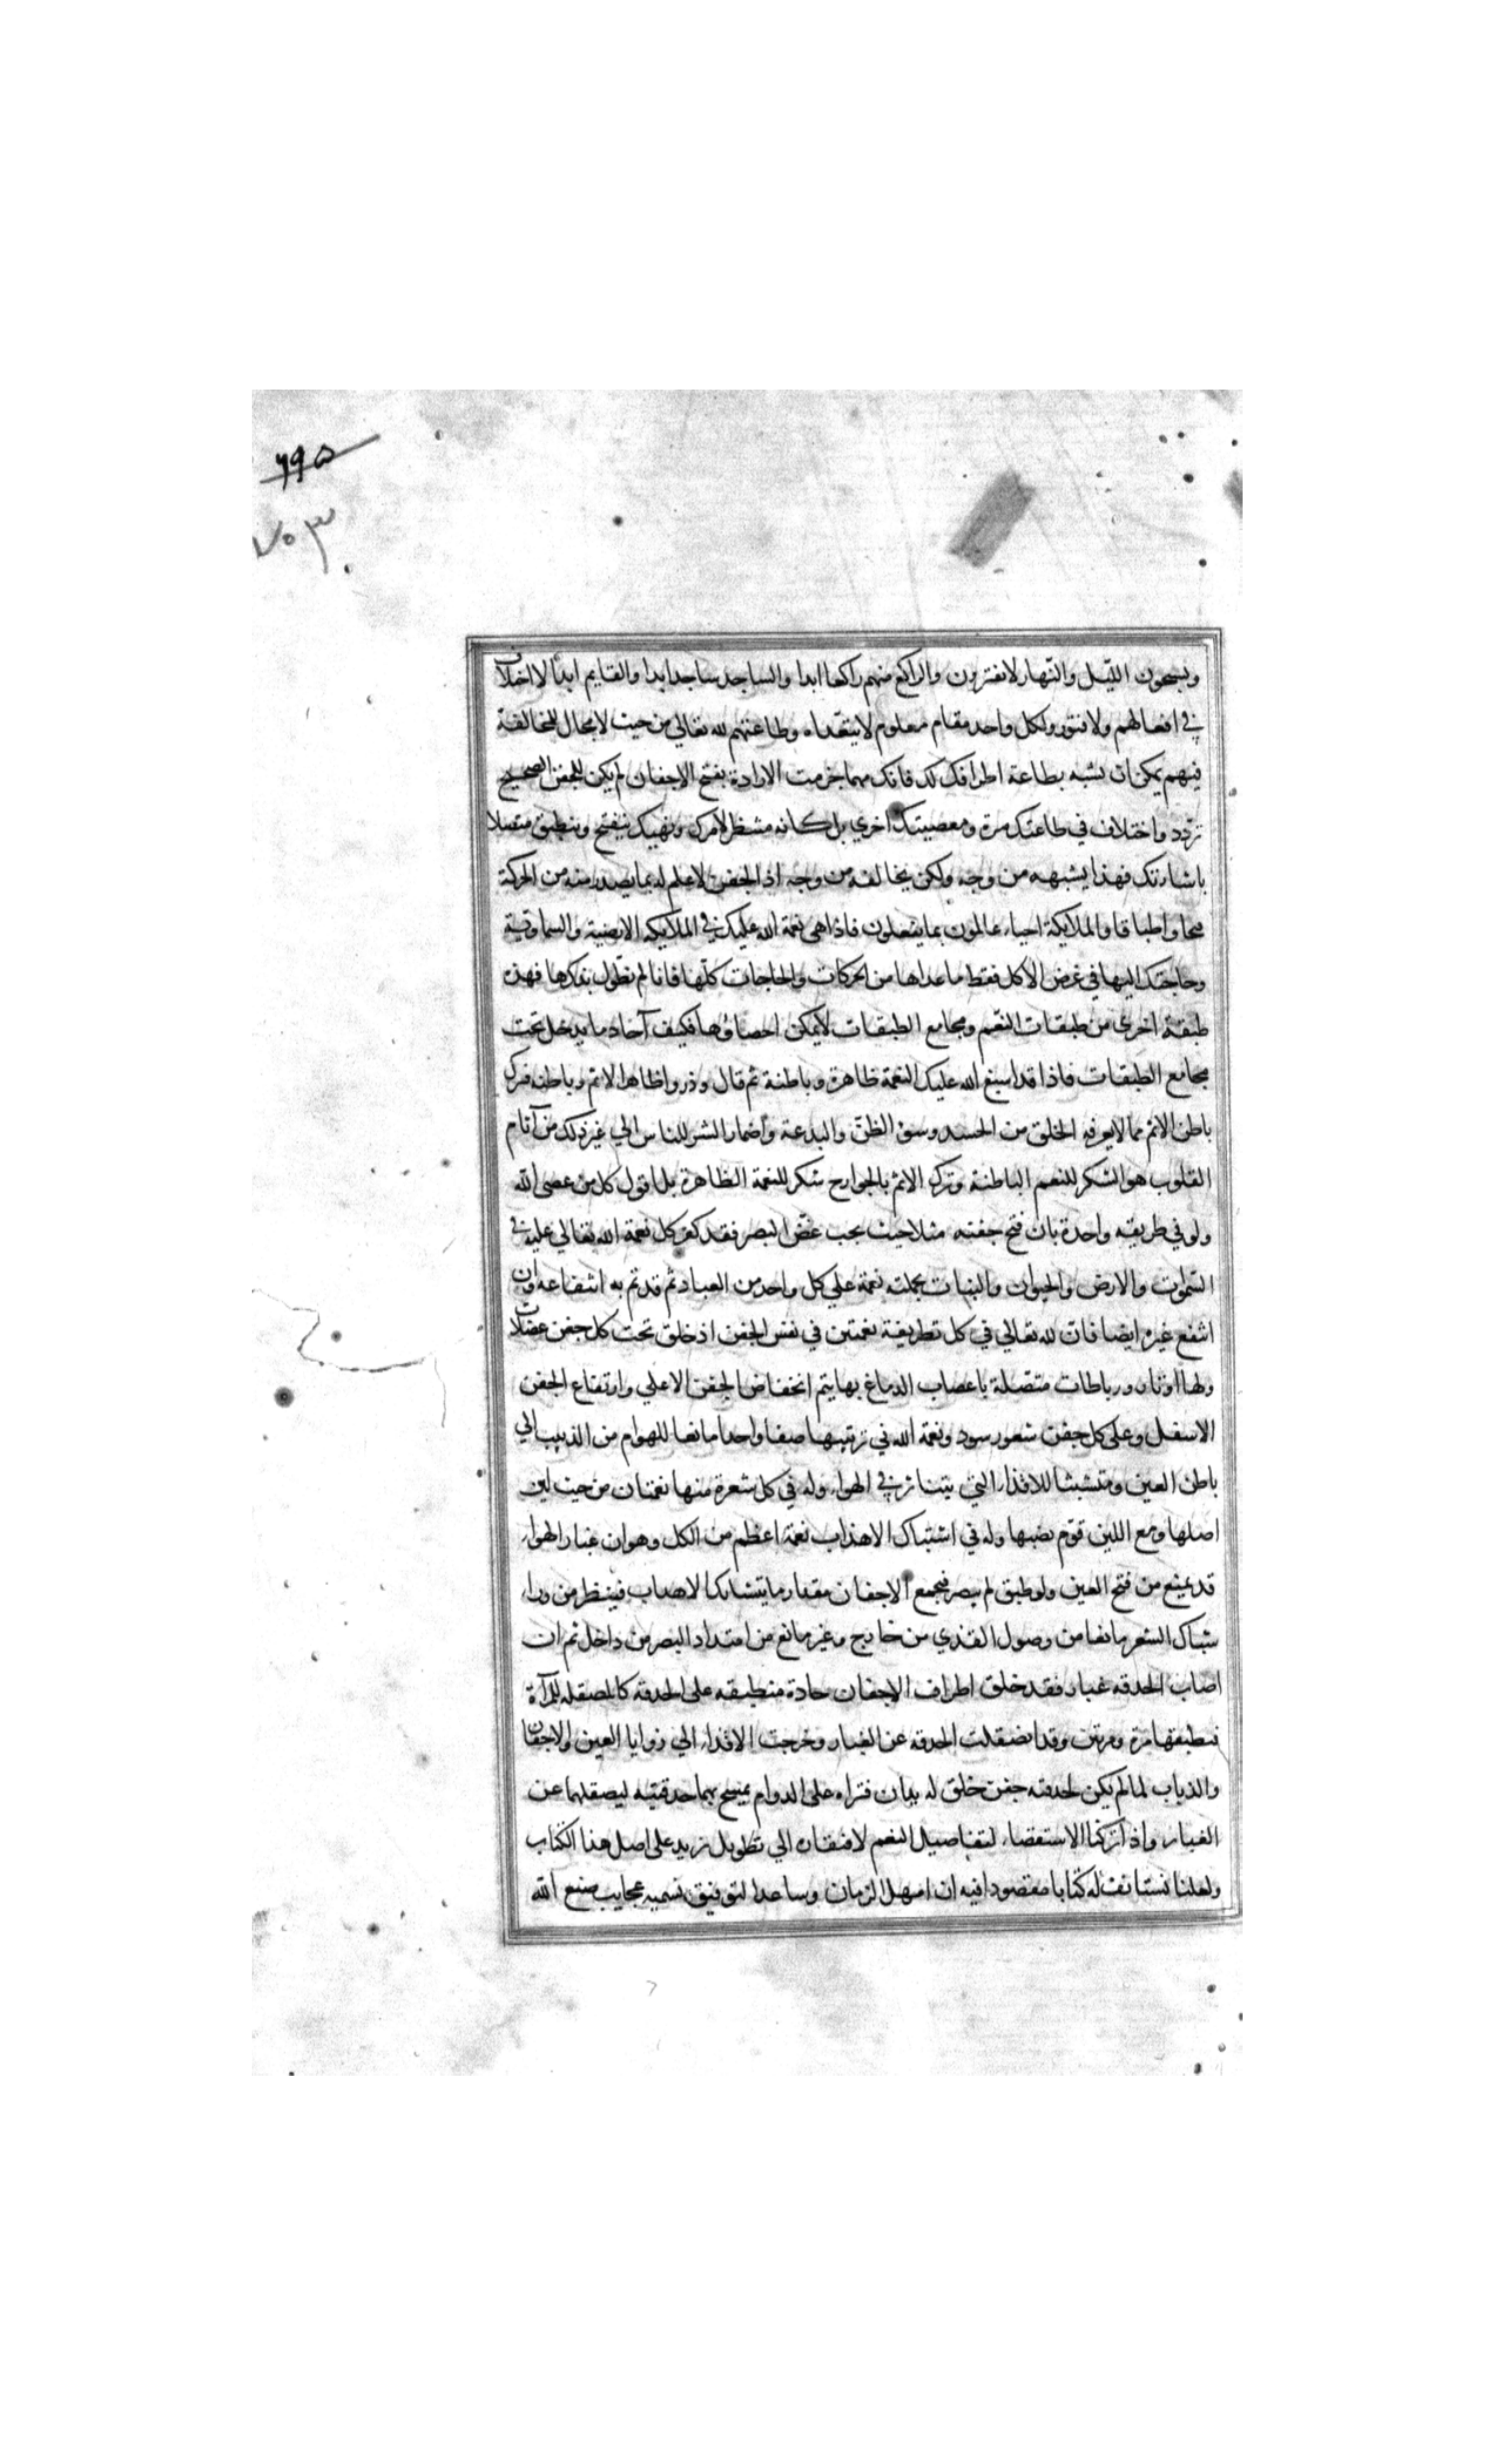 ۶۹۵
۷۰۳
ويسبحون الليل والنهار لا يفترون والراكع منهم راكعا ابدا والساجد ساجد ابدا والقايم ابدا لا اختلاف
في افعالهم ولا فتور ولكل واحد مقام معلوم لا يتعداه وطاعتهم لله تعالي من حيث لا مجال للمخالفة
فيهم يمكن ان يشبه بطاعة اطرافك لك فانك مهما جزمت الارادة بفتح الاجفان لم يكن للجفن الصحيح
تردد واختلاف في طاعتك مرة ومعصيتك اخري بل كانه منتظر لامرك ونهيك ينفتح وينطبق متصلا
باشارتك فهذا يشبهه من وجه ولكن يخالفه من وجه اذ الجفن لا علم له بما يصدر منه من الحركة
فتحا واطباقا والملايكة احياء عالمون بما يفعلون فاذا هي نعمة الله عليك في الملايكه الارضية والسماوية
وحاجتك اليها في غرض الاكل فقط ما عداها من الحركات والحاجات كلها فانا لم نطول بذكرها فهذه
طبقة اخري من طبقات النعم ومجامع الطبقات لا يمكن احصاؤها فكيف آحاد ما يدخل تحت
مجامع الطبقات فاذا قد اسبغ الله عليك النعمة ظاهرة وباطنة ثم قال وذروا ظاهر الاثم وباطنه فترك
باطن الاثم مما لا يعرفه الخلق من الحسد وسوء الظن والبدعة واضمار الشر للناس الي غير ذلك من آثام
القلوب هو الشكر للنعم الباطنة وترك الاثم بالجوارح شكر للنعمة الظاهرة بل اقول كل من عصي الله
ولو في طريقه واحدة بان فتح جفنه مثلا حيث يجب غض البصر فقد كفر كل نعمة الله تعالي عليه في
السموت والارض والحيوان والنبات بجملته نعمة علي كل واحد من العباد ثم قد تم به انتفاعه وان
انتفع غيره ايضا فان لله تعالي في كل تطريفة نعمتين في نفس الجفن اذ خلق تحت كل جفن عضلات
ولها اوتار ورباطات متصلة باعصاب الدماغ بها يتم انخفاض الجفن الاعلي وارتفاع الجفن
الاسفل وعلي كل جفن شعور سود ونعمة الله في ترتيبها صفا واحدا مانعا للهوام من الدبيب الي
باطن العين ومتشبثا للاقذاء التي يتناثر في الهواء وله في كل شعرة منها نعمتان من حيث لين
اصلها ومع اللين قوم نصبها وله في اشتباك الاهداب نعمة اعظم من الكل وهو ان غبار الهواء
قد يمنع من فتح العين ولو طبق لم يبصر فيجمع الاجفان مقدار ما يتشابك الاهداب فينظر من وراء
شباك الشعر مانعا من وصول القذي من خارج وغير مانع من امتداد البصر من داخل ثم ان
اصاب الحدقه غبار فقد خلق اطراف الاجفان حادة منطبقه علي الحدقه كالمصقله للمرآة
فيطبقها مرة ومرتين وقد انصقلت الحدقه عن الغبار وخرجت الاقذاء الي زوايا العين والاجفان
والذباب لما لم يكن لحدقته جفن خلق له يدان فتراه علي الدوام يمسح بهما حدقتيه ليصقلهما عن
الغبار واذ تركنا الاستقصاء لتفاصيل النعم لافتقاره الي تطويل نزيد علي اصل هذا الكتاب
ولعلنا نستانف له كتابا مقصودا فيه ان امهل الزمان وساعد التوفيق نسميه عجايب صنع الله